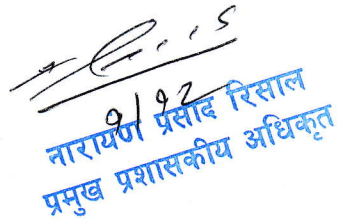 ९/१२
नारायण प्रसाद रिसाल
प्रमुख प्रशासकीय अधिकृत